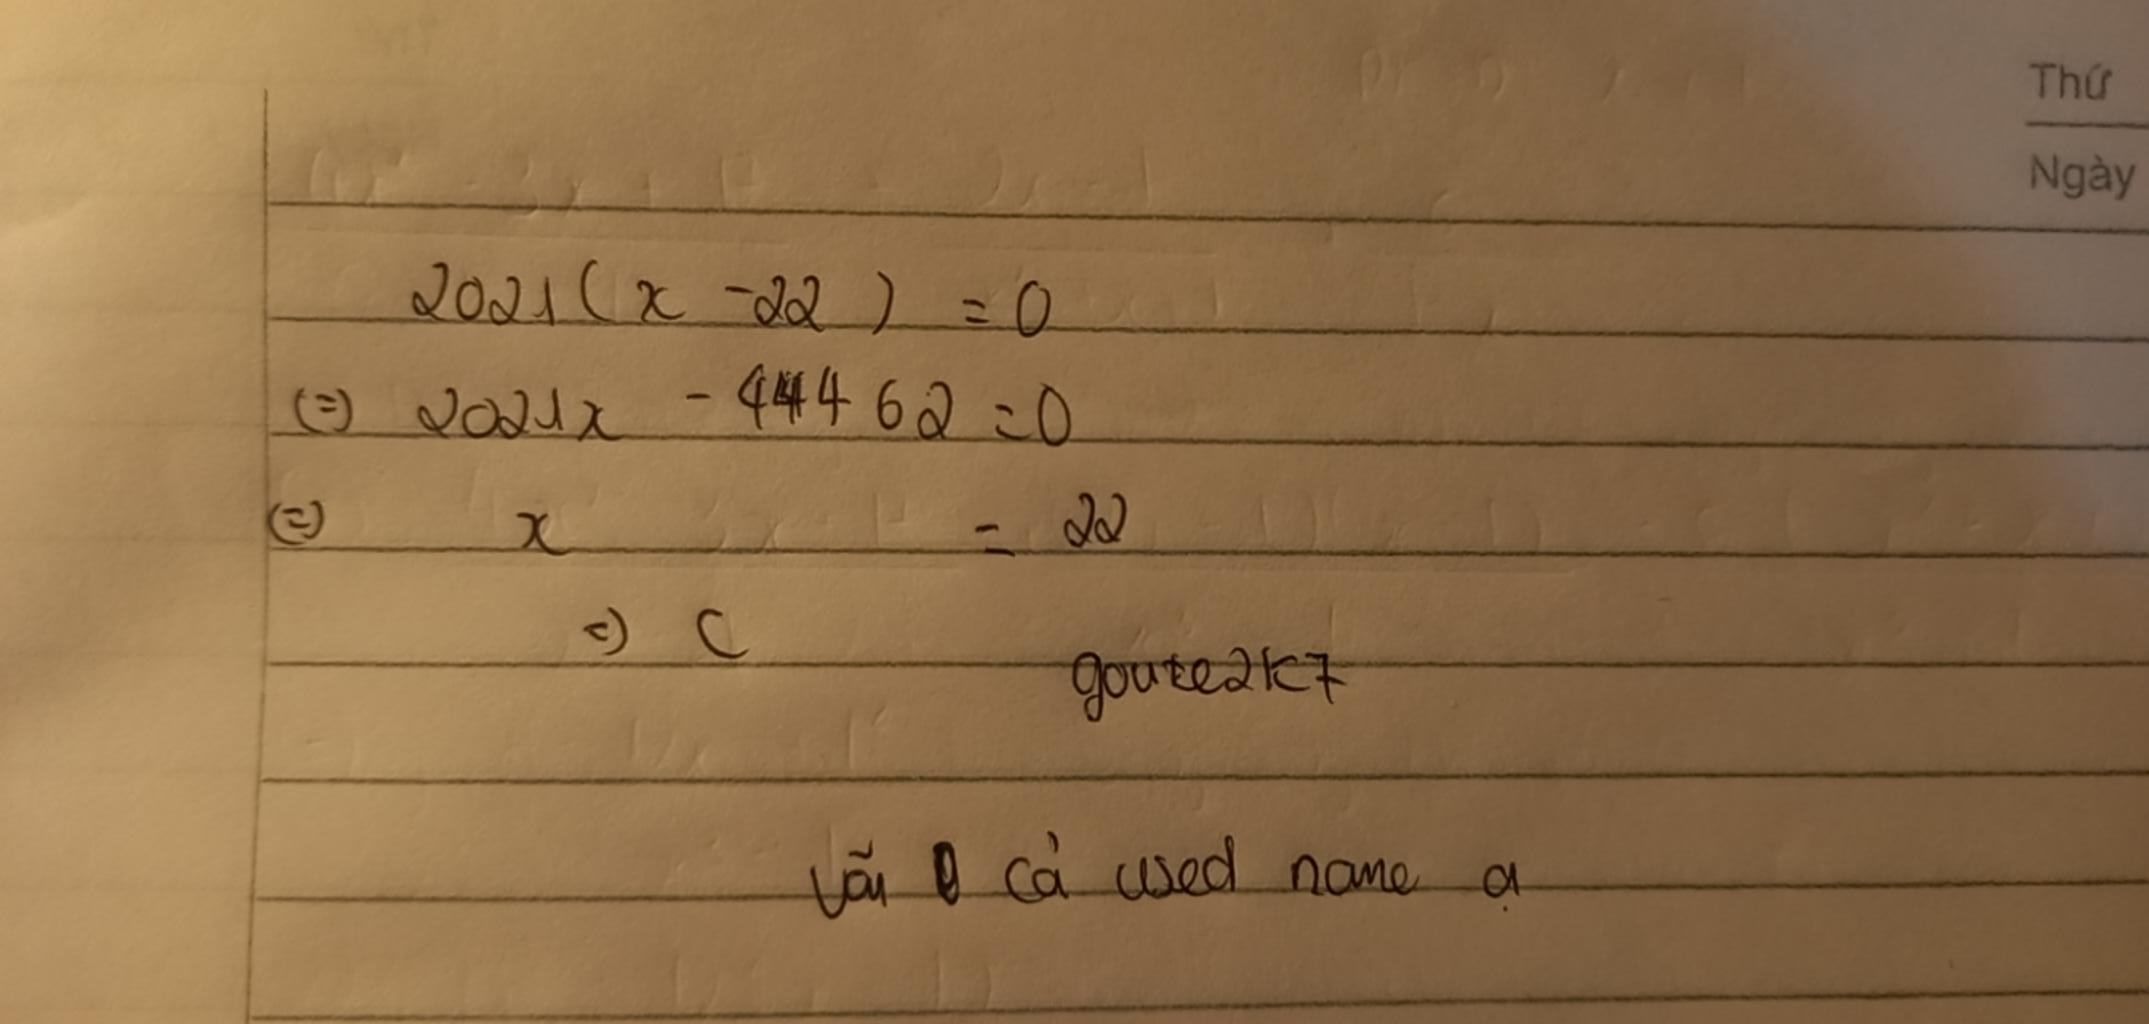 Thứ
Ngày
2021(x -22) = 0
(=) 2021x - 44462 = 0
(=) x = 22
=) C
goute2k7
Vãi cả used name ạ